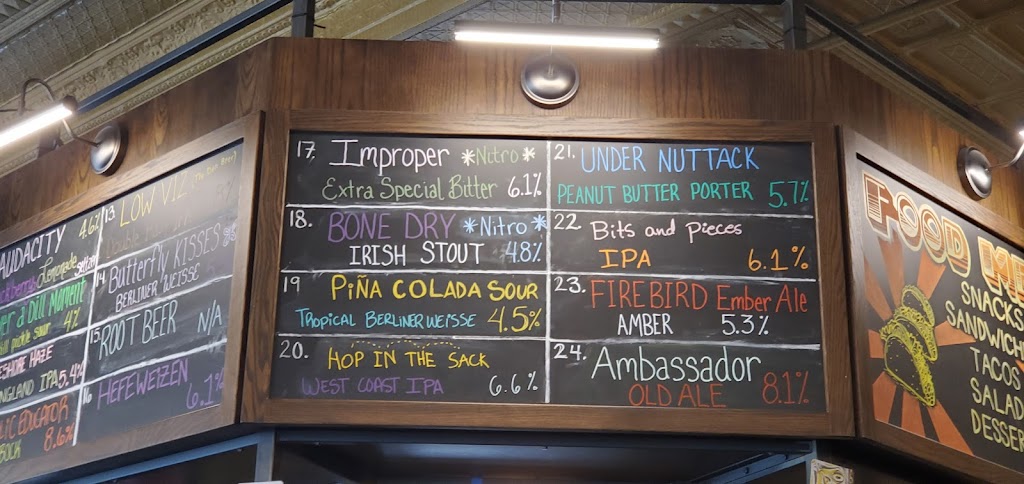 AUDACITY 4.6%
Lemonade
a Dill Moment
pickle sour 4%
HAZE
ENGLAND IPA 5.4%
EDUCATOR
BOCK 8.6%
13 LOW VIZ
14 Butterfly Kisses
BERLINER WEISSE
15 ROOT BEER N/A
HEFEWEIZEN 6.1%
17. Improper *Nitro*
Extra Special Bitter 6.1%
18. BONE DRY *Nitro*
IRISH STOUT 4.8%
19 PIÑA COLADA SOUR
Tropical BERLINER WEISSE 4.5%
20. HOP IN THE SACK
WEST COAST IPA 6.6%
21. UNDER NUTTACK
PEANUT BUTTER PORTER 5.7%
22 Bits and pieces
IPA 6.1%
23. FIREBIRD Ember Ale
AMBER 5.3%
24. Ambassador
OLD ALE 8.1%
FOOD ME
SNACKS
SANDWICH
TACOS
SALAD
DESSER